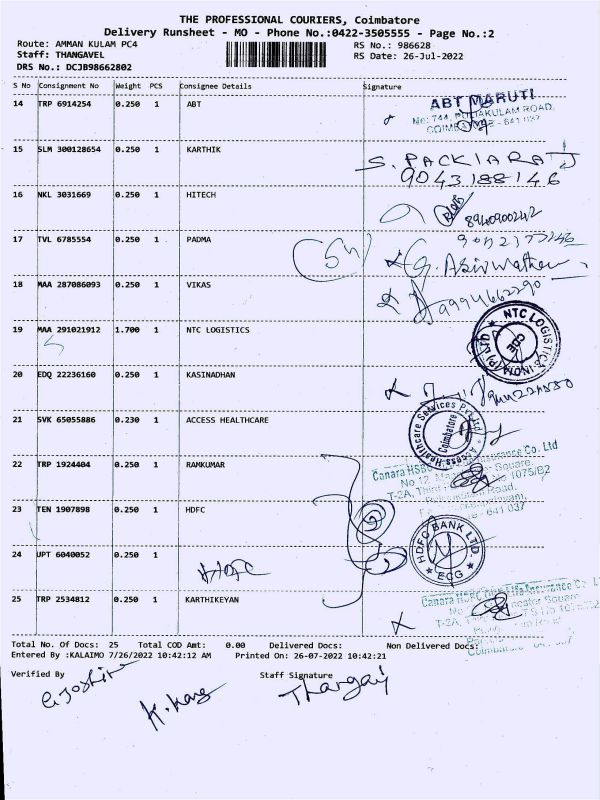 THE PROFESSIONAL COURIERS, Coimbatore
Delivery Runsheet - MO - Phone No.:0422-3505555 - Page No.:2
Route: AMMAN KULAM PC4
RS No.: 986628
Staff: THANGAVEL
RS Date: 26-Jul-2022
DRS No.: DCJB98662802
S No Consignment No Weight PCS Consignee Details Signature
14 TRP 6914254 0.250 1 ABT
ABT MARUTI
No: 744, PULIAKULAM ROAD,
COIMBATORE - 641 037
15 SLM 300128654 0.250 1 KARTHIK
S. PACKIARAJ
9043188146
16 NKL 3031669 0.250 1 HITECH
8940900242
17 TVL 6785554 0.250 1 PADMA
18 MAA 287086093 0.250 1 VIKAS
9994662290
19 MAA 291021912 1.700 1 NTC LOGISTICS
NTC LOGISTICS INDIA (P) LTD
CBE
20 EDQ 22236160 0.250 1 KASINADHAN
21 SVK 65055886 0.230 1 ACCESS HEALTHCARE
Access Healthcare Services Pvt Ltd
Coimbatore
22 TRP 1924404 0.250 1 RAMKUMAR
Canara HSBC Insurance Co. Ltd
No 12, Square
T-2A, Third No 1075/B2
Road,
- 641 037
23 TEN 1907898 0.250 1 HDFC
HDFC BANK LTD
24 UPT 6040052 0.250 1
HDFC
25 TRP 2534812 0.250 1 KARTHIKEYAN
Canara HSBC Life Insurance Co. L
Square
T-2A,
Coimbatore
Total No. Of Docs: 25 Total COD Amt: 0.00 Delivered Docs: Non Delivered Docs:
Entered By :KALAIMO 7/26/2022 10:42:12 AM Printed On: 26-07-2022 10:42:21
Verified By Staff Signature